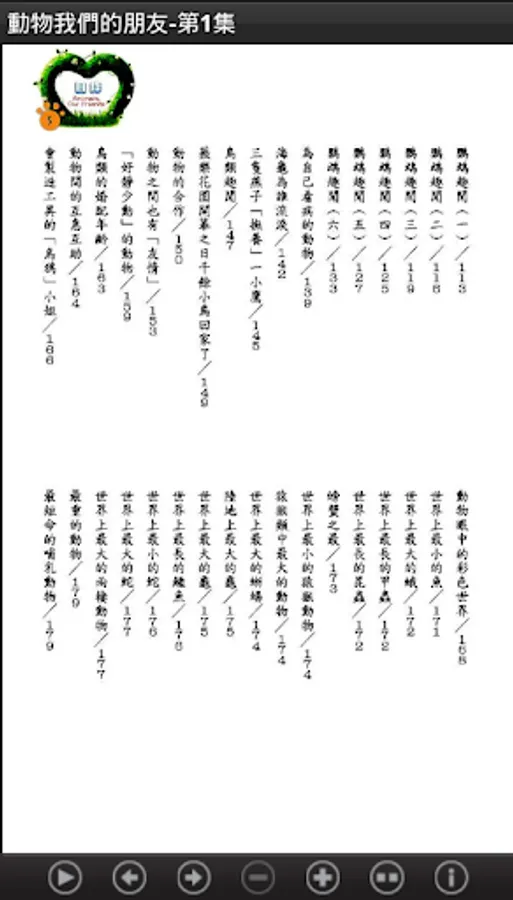 動物我們的朋友-第1集
Animals,
Our Friends
5
鸚鵡趣聞（一）╱113
鸚鵡趣聞（二）╱116
鸚鵡趣聞（三）╱119
鸚鵡趣聞（四）╱125
鸚鵡趣聞（五）╱127
鸚鵡趣聞（六）╱133
為自己看病的動物╱139
海龜為誰流淚╱142
三隻燕子「撫養」一小鷹╱145
鳥類趣聞╱147
薇樂花園開幕之日千餘小鳥回家了╱149
動物的合作╱150
動物之間也有「友情」╱153
「好靜少動」的動物╱159
鳥類的婚配年齡╱163
動物間的互惠互助╱164
會製造工具的「烏鴉」小姐╱166
動物眼中的彩色世界╱168
世界上最小的魚╱171
世界上最大的蛾╱172
世界上最長的甲蟲╱172
世界上最長的昆蟲╱172
螃蟹之最╱173
世界上最小的猿猴動物╱174
猿猴類中最大的動物╱174
世界上最大的蜥蜴╱174
陸地上最大的龜╱175
世界上最大的龜╱175
世界上最長的鱷魚╱176
世界上最小的蛇╱176
世界上最大的蛇╱177
世界上最大的兩棲動物╱177
最重的動物╱179
最短命的哺乳動物╱179